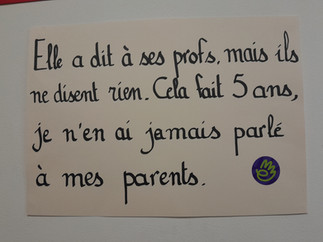 Elle a dit à ses profs, mais ils
ne disent rien. Cela fait 5 ans,
je n'en ai jamais parlé
à mes parents.